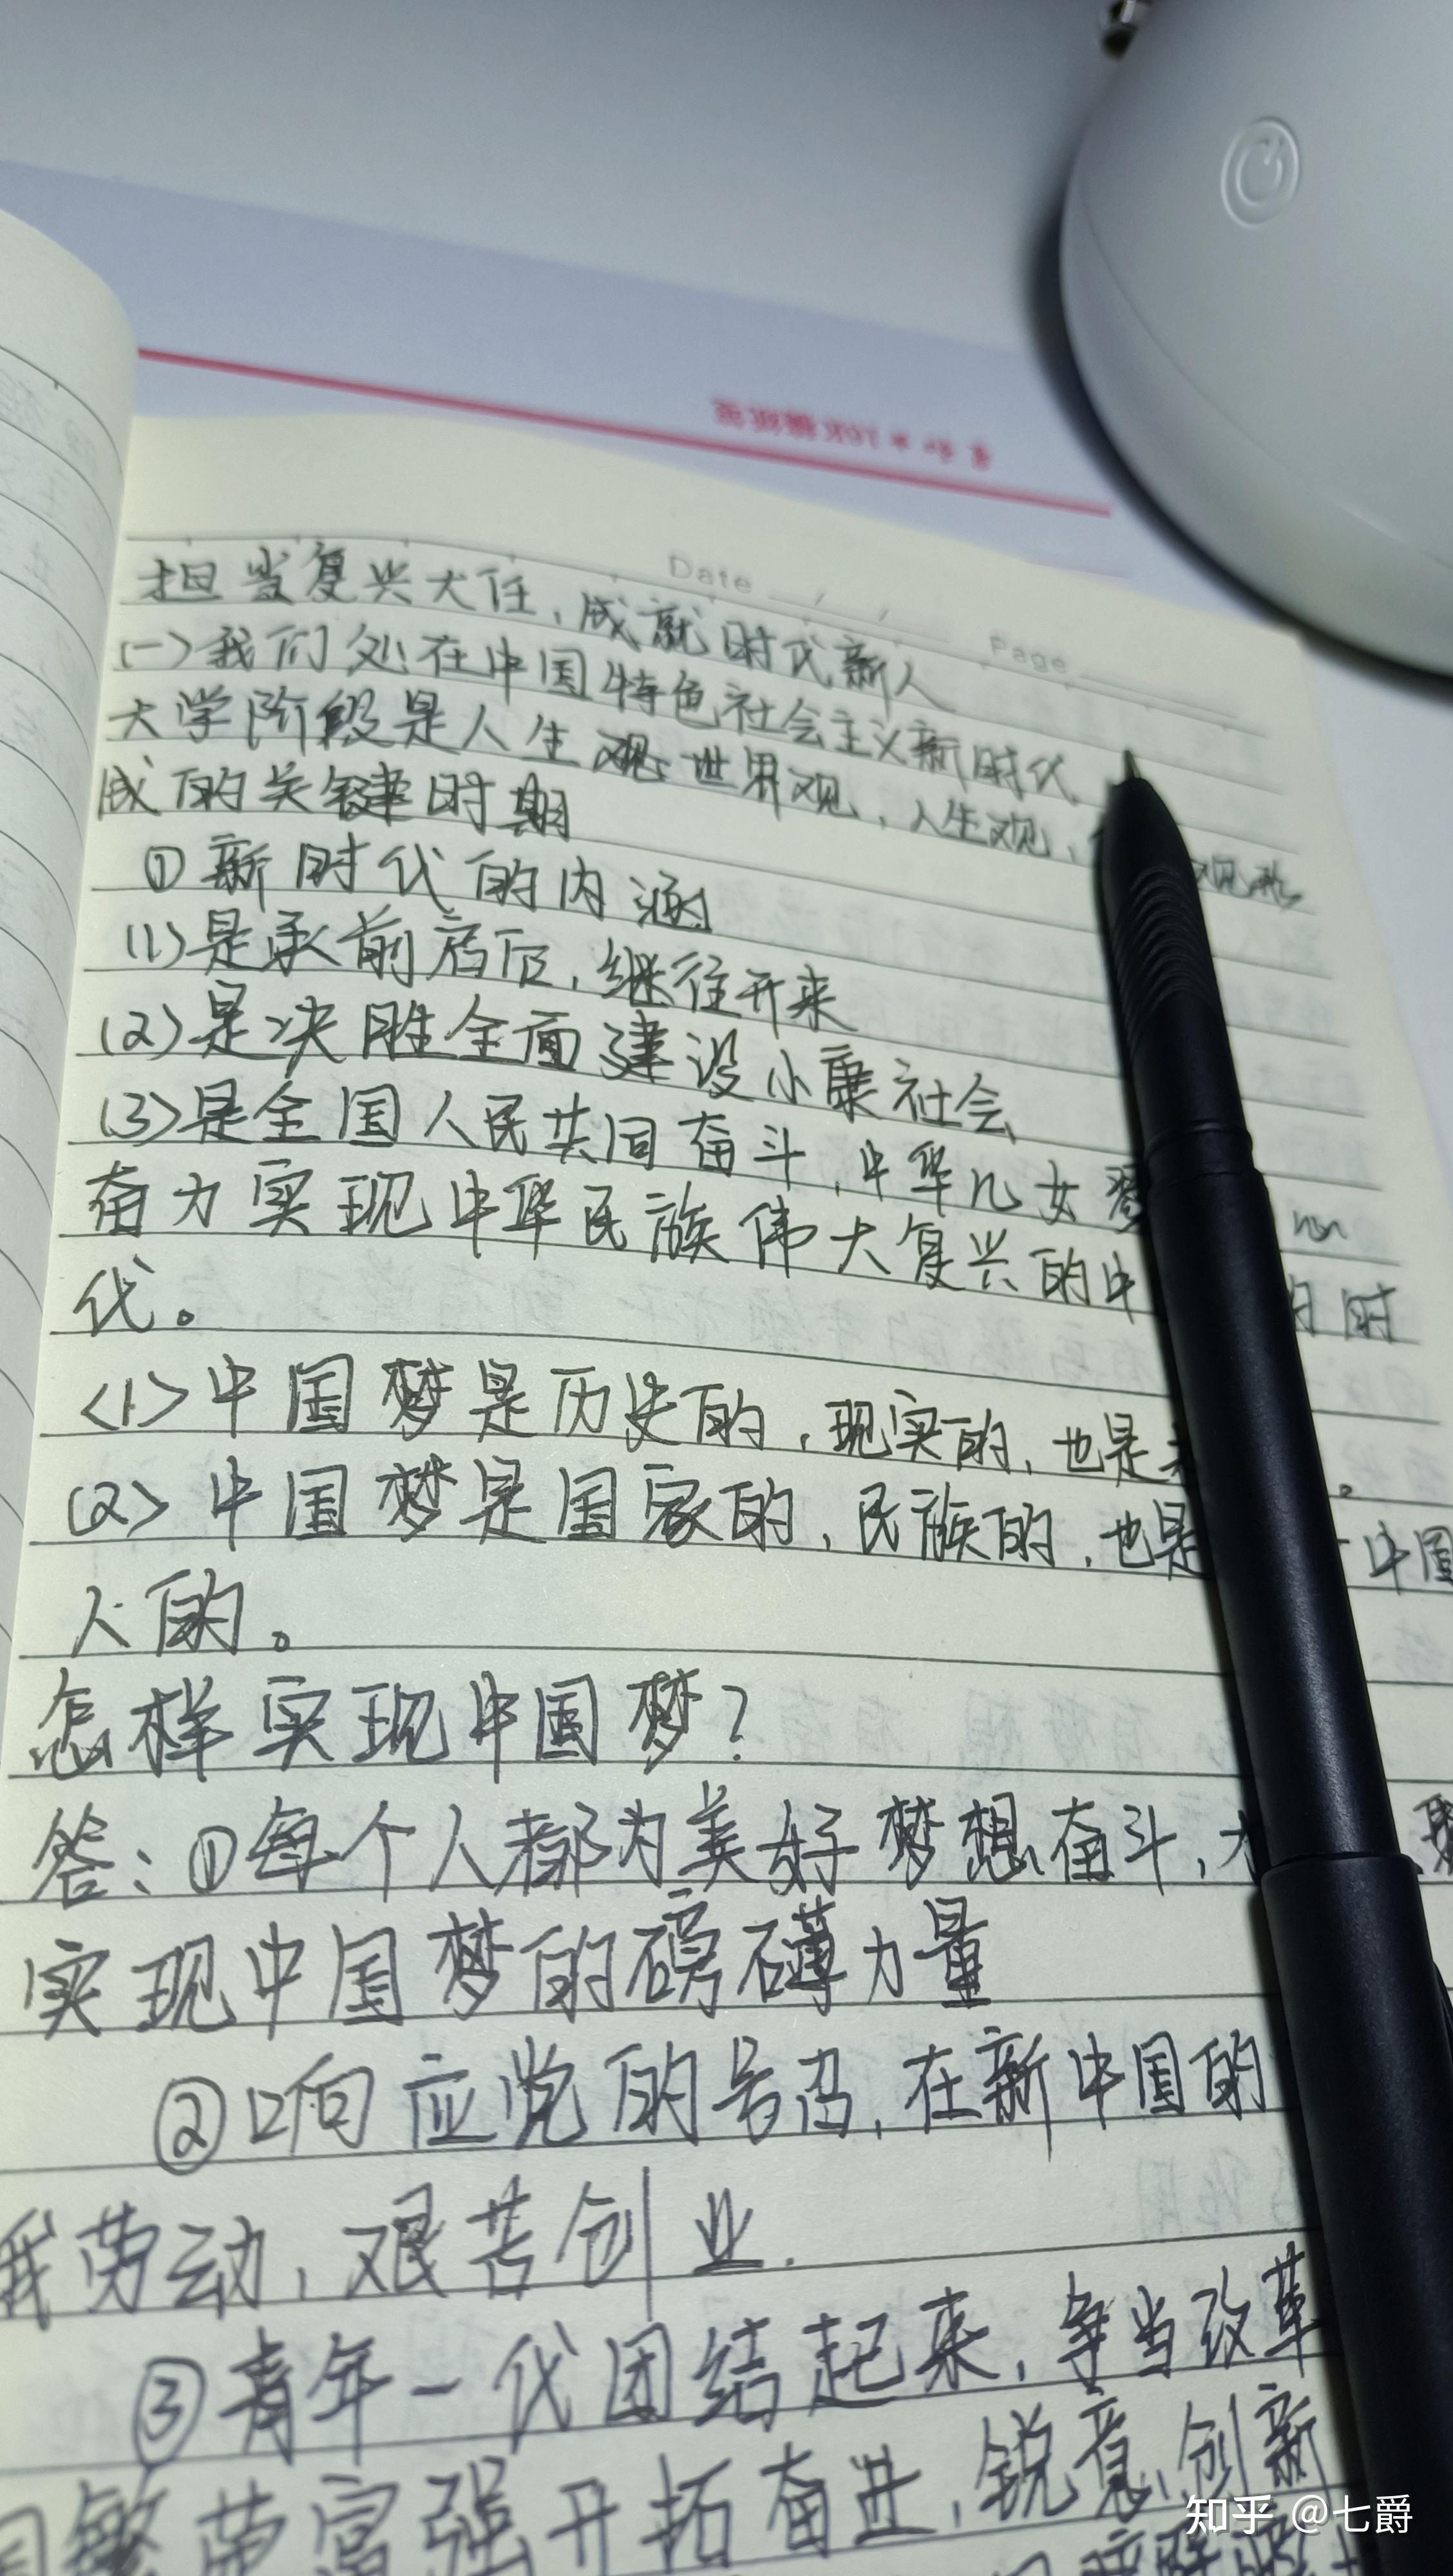 Date
Page
担当复兴大任,成就时代新人
(一)我们处在中国特色社会主义新时代
大学阶段是人生观世界观,人生观,观形
成的关键时期
①新时代的内涵
(1)是承前启后,继往开来
(2)是决胜全面建设小康社会
(3)是全国人民共同奋斗,中华儿女
奋力实现中华民族伟大复兴的中 时
代。
<1>中国梦是历史的,现实的,也是 。
(2>中国梦是国家的,民族的,也是 中国
人的。
怎样实现中国梦?
答:①每个人都为美好梦想奋斗,
实现中国梦的磅礴力量
②响应党的号召,在新中国的
我劳动,艰苦创业.
③青年一代团结起来,争当改革
国繁荣富强开拓奋进,锐意创新
知乎 @七爵